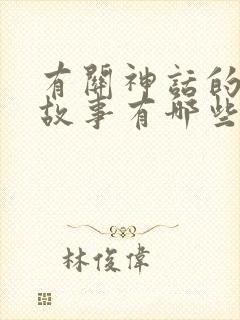 有關神話的
故事有哪些
林俊偉